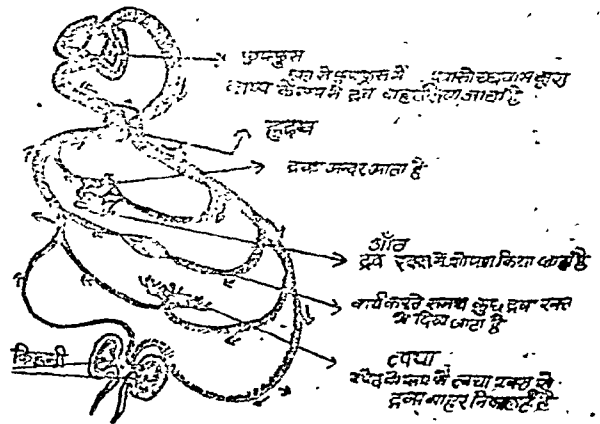 फुफ्फुस
रक्त से फुफ्फुस में श्वासोच्छवास द्वारा
वाष्प के रूप में द्रव बाहर लिया जाता है
हृदय
द्रव अन्दर आता है
आँत
द्रव रक्त में शोषण किया जाता है
कार्य करते समय कुछ द्रव रक्त
में दिया जाता है
त्वचा
स्वेद के रूप में त्वचा रक्त से
द्रव बाहर निकालते है
किडनी